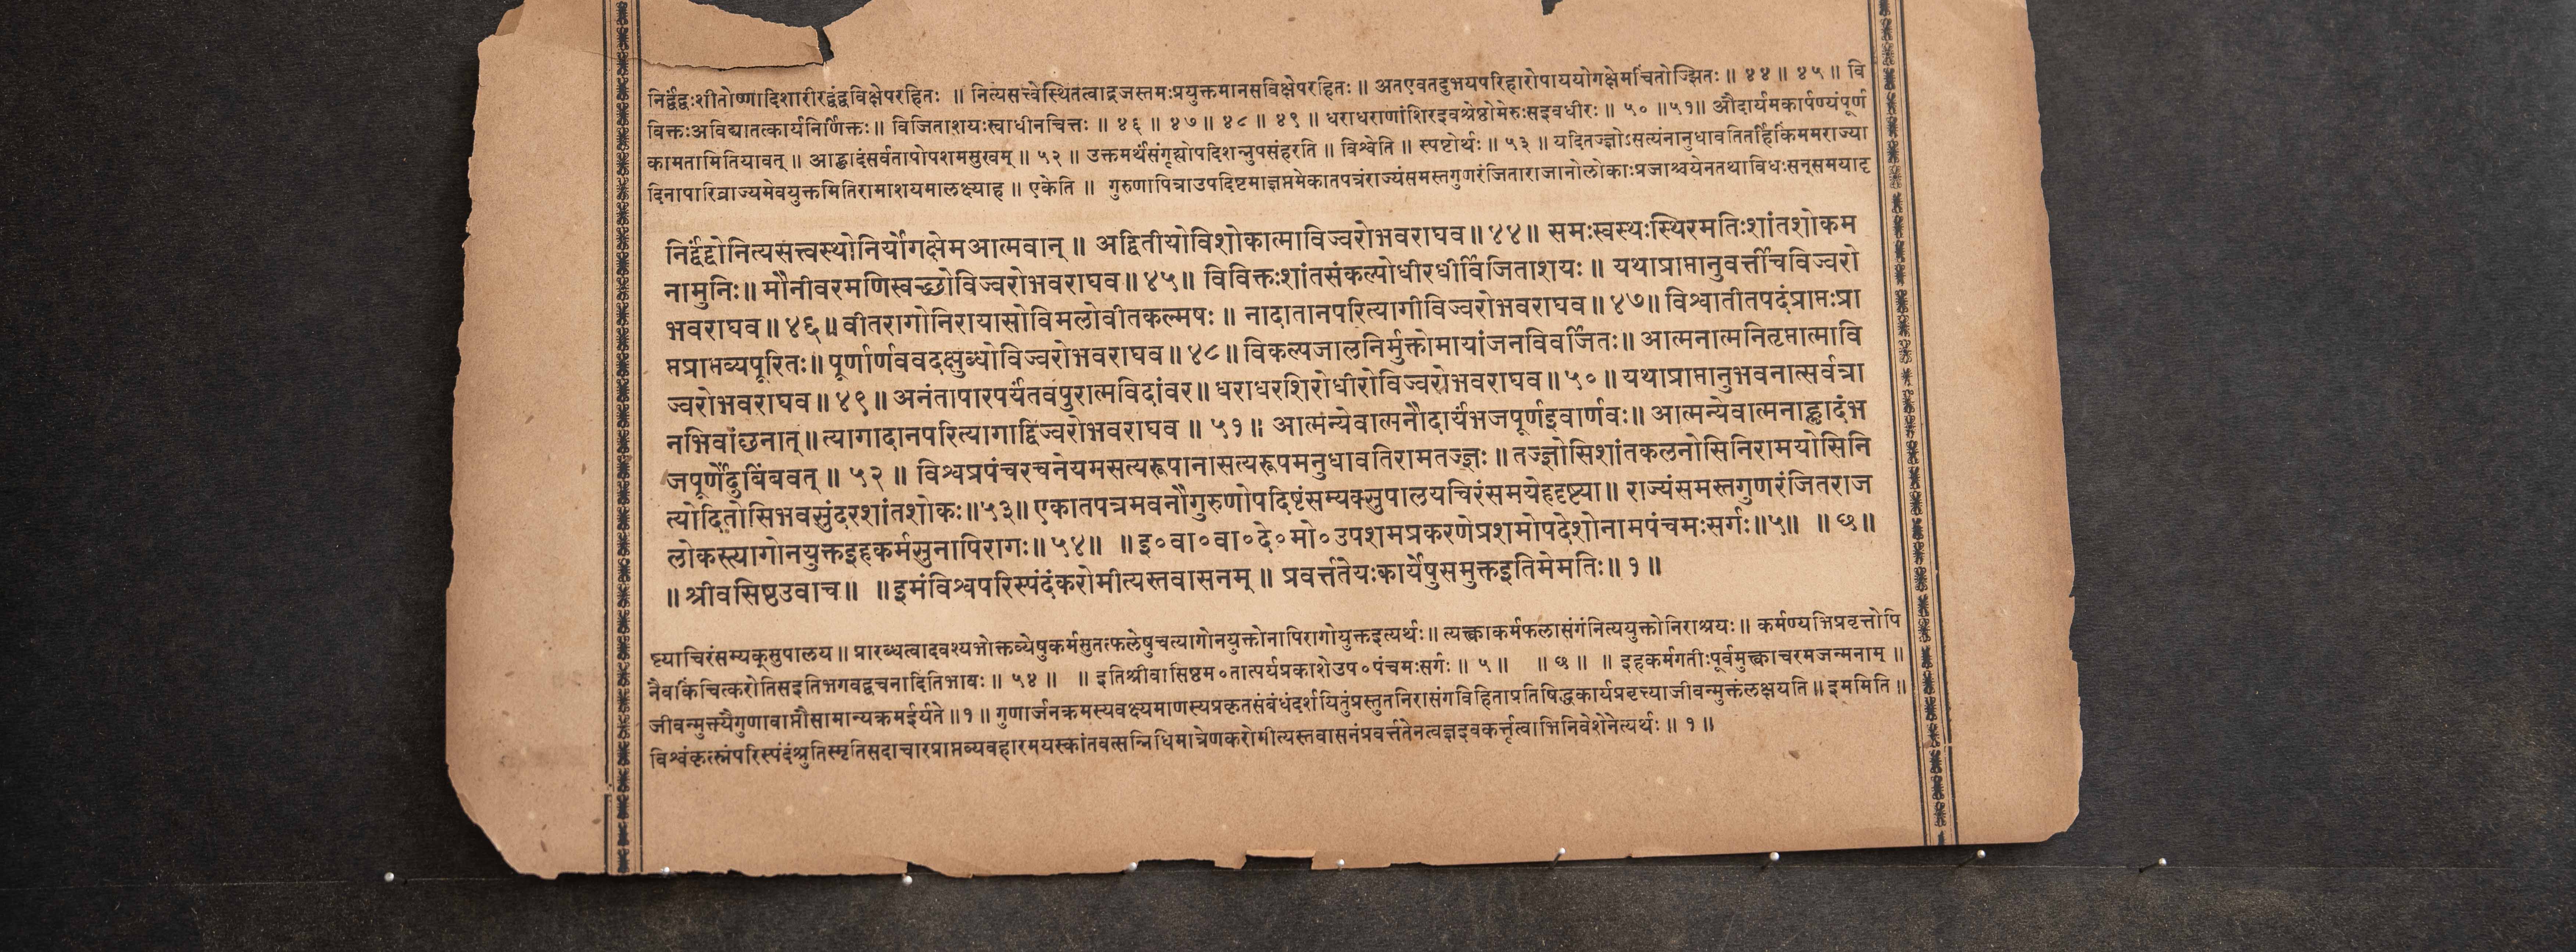 निर्द्वंद्वःशीतोष्णादिशारीरद्वंद्वविक्षेपरहितः ॥ नित्यसत्त्वेस्थितत्वाद्रजस्तमःप्रयुक्तमानसविक्षेपरहितः ॥ अतएवतदुभयपरिहारोपाययोगक्षेमचिंतोज्झितः ॥ ४४ ॥ ४५ ॥ वि
विक्तःअविद्यातत्कार्यनिर्णिक्तः ॥ विजिताशयःस्वाधीनचित्तः ॥ ४६ ॥ ४७ ॥ ४८ ॥ ४९ ॥ धराधराणांशिरइवश्रेष्ठोमेरुःसइवधीरः ॥ ५० ॥ ५१ ॥ औदार्यमकार्पण्यंपूर्ण
कामतामितियावत् ॥ आह्लादंसर्वतापोपशमसुखम् ॥ ५२ ॥ उक्तमर्थंसंगृह्योपदिशन्नुपसंहरति ॥ विश्वेति ॥ स्पष्टोर्थः ॥ ५३ ॥ यदितज्ज्ञोऽसत्यंनानुधावतितर्हिकिंममराज्या
दिनापारिव्राज्यमेवयुक्तमितिरामाशयमालक्ष्याह ॥ एकेति ॥ गुरुणापित्राउपदिष्टमाज्ञप्तमेकातपत्रंराज्यंसमस्तगुणरंजिताराजानोलोकाःप्रजाश्चयेनतथाविधःसन्समयादृ
निर्द्वंद्वोनित्यसत्त्वस्थोनिर्योगक्षेमआत्मवान् ॥ अद्वितीयोविशोकात्माविज्वरोभवराघव ॥ ४४ ॥ समःस्वस्थःस्थिरमतिःशांतशोकम
नामुनिः ॥ मौनीवरमणिस्वच्छोविज्वरोभवराघव ॥ ४५ ॥ विविक्तःशांतसंकल्पोधीरधीर्विजिताशयः ॥ यथाप्राप्तानुवर्त्तीचविज्वरो
भवराघव ॥ ४६ ॥ वीतरागोनिरायासोविमलोवीतकल्मषः ॥ नादातानपरित्यागीविज्वरोभवराघव ॥ ४७ ॥ विश्वातीतपदंप्राप्तःप्रा
प्तप्राप्तव्यपूरितः ॥ पूर्णार्णववदक्षुब्धोविज्वरोभवराघव ॥ ४८ ॥ विकल्पजालनिर्मुक्तोमायांजनविवर्जितः ॥ आत्मनात्मनितृप्तात्मावि
ज्वरोभवराघव ॥ ४९ ॥ अनंतापारपर्यंतवपुरात्मविदांवर ॥ धराधरशिरोधीरोविज्वरोभवराघव ॥ ५० ॥ यथाप्राप्तानुभवनात्सर्वत्रा
नभिवांछनात् ॥ त्यागादानपरित्यागाद्विज्वरोभवराघव ॥ ५१ ॥ आत्मन्येवात्मनौदार्यंभजपूर्णइवार्णवः ॥ आत्मन्येवात्मनाह्लादंभ
जपूर्णेंदुबिंबवत् ॥ ५२ ॥ विश्वप्रपंचरचनेयमसत्यरूपानासत्यरूपमनुधावतिरामतज्ज्ञः ॥ तज्ज्ञोसिशांतकलनोसिनिरामयोसिनि
त्योदितोसिभवसुंदरशांतशोकः ॥ ५३ ॥ एकातपत्रमवनौगुरुणोपदिष्टंसम्यक्सुपालयचिरंसमयेहदृष्ट्या ॥ राज्यंसमस्तगुणरंजितराज
लोकस्त्यागोनयुक्तइहकर्मसुनापिरागः ॥ ५४ ॥ ॥ इ०वा०वा०दे०मो०उपशमप्रकरणेप्रशमोपदेशोनामपंचमःसर्गः ॥ ५ ॥ ॥ छ ॥
॥ श्रीवसिष्ठउवाच ॥ ॥ इमंविश्वपरिस्पंदंकरोमीत्यस्तवासनम् ॥ प्रवर्त्ततेयःकार्येषुसमुक्तइतिमेमतिः ॥ १ ॥
ष्ट्याचिरंसम्यक्सुपालय ॥ प्रारब्धत्वादवश्यभोक्तव्येषुकर्मसुतत्फलेषुचत्यागोनयुक्तोनापिरागोयुक्तइत्यर्थः ॥ त्यक्त्वाकर्मफलासंगंनित्ययुक्तोनिराश्रयः ॥ कर्मण्यभिप्रवृत्तोपि
नैवकिंचित्करोतिसइतिभगवद्वचनादितिभावः ॥ ५४ ॥ ॥ इतिश्रीवासिष्ठम०तात्पर्यप्रकाशेउप०पंचमःसर्गः ॥ ५ ॥ ॥ छ ॥ ॥ इहकर्मगतीःपूर्वमुक्त्वाचरमजन्मनाम् ॥
जीवन्मुक्त्यैगुणावाप्तौसामान्यक्रमईर्यते ॥ १ ॥ गुणार्जनक्रमस्यवक्ष्यमाणस्यप्रकृतसंबंधंदर्शयितुंप्रस्तुतनिरासंगविहिताप्रतिषिद्धकार्यप्रवृत्त्याजीवन्मुक्तंलक्षयति ॥ इममिति ॥
विश्वंकृत्स्नंपरिस्पंदंश्रुतिस्मृतिसदाचारप्राप्तव्यवहारमयस्कांतवत्सन्निधिमात्रेणकरोमीत्यस्तवासनंप्रवर्त्ततेनत्वज्ञइवकर्त्तृत्वाभिनिवेशेनेत्यर्थः ॥ १ ॥